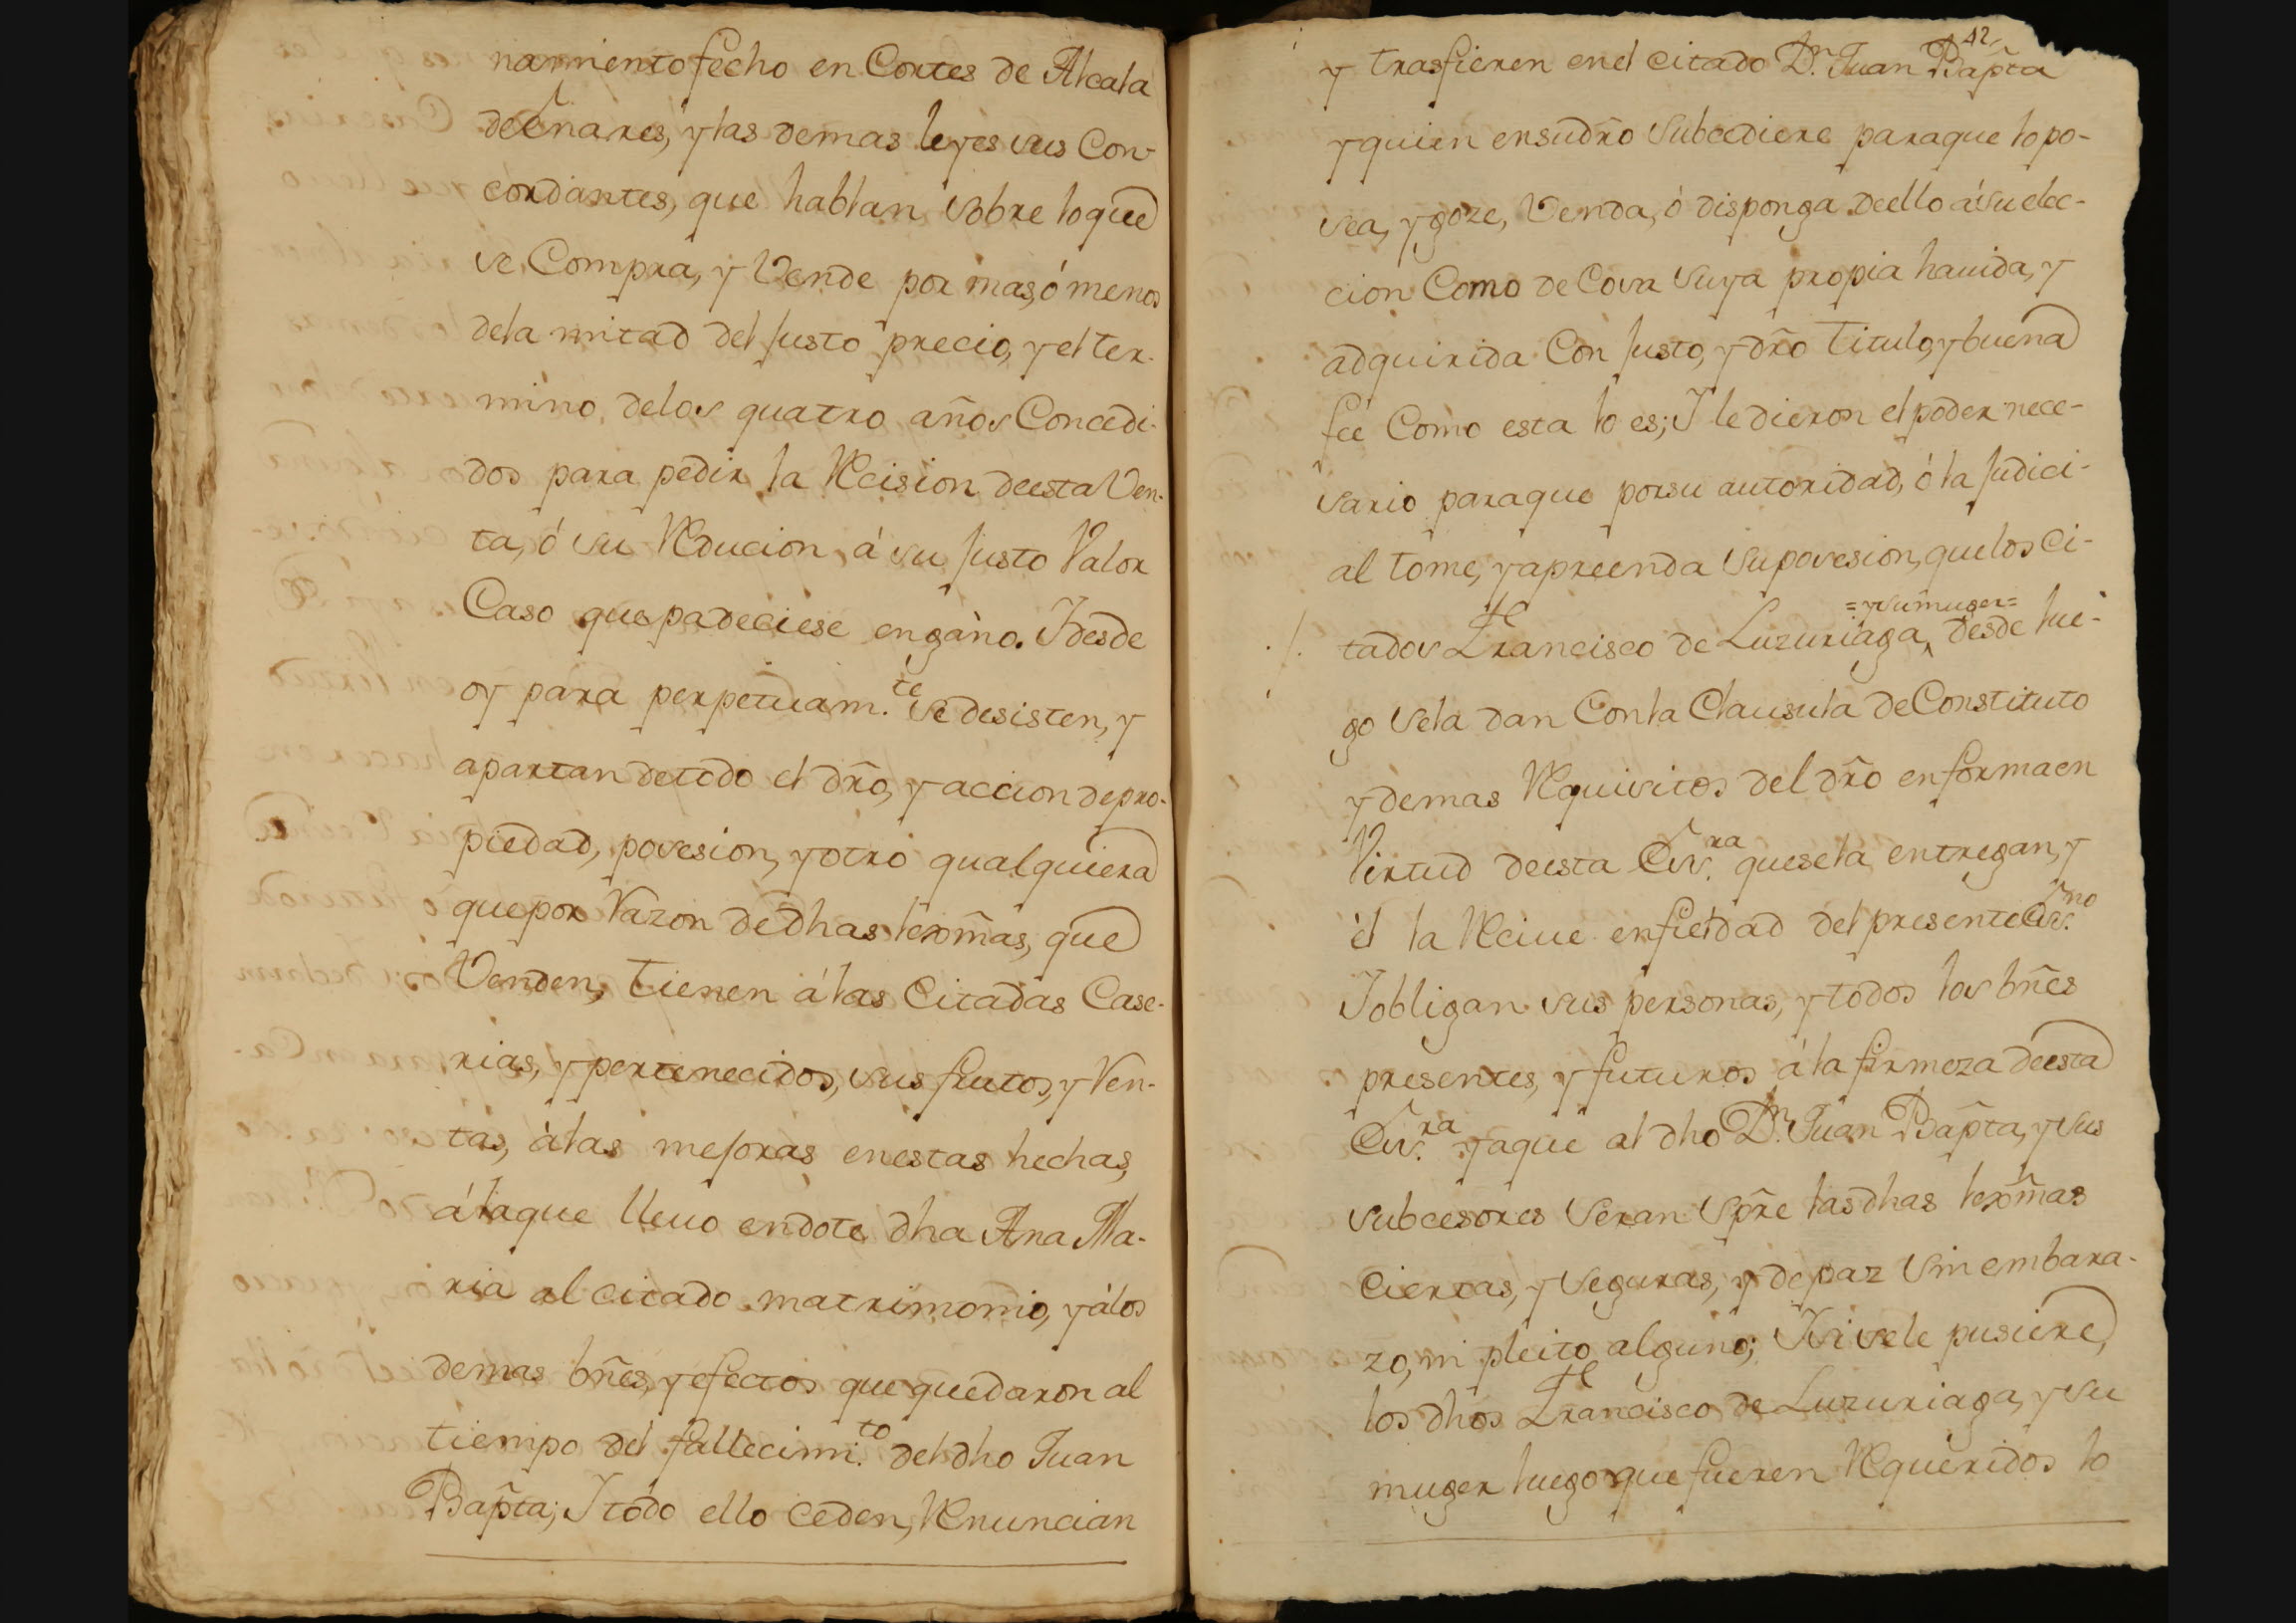 namientofecho en Cortes de Alcala
deEnares, y las demas leyes sus Con-
cordantes, que hablan sobre loque
se Compra, y Vende por mas, ó menos
dela mitad del Justo precio, y el ter-
mino delos quatro años Concedi-
dos para pedir la Recision deesta Ven-
ta, ó su Reducion á su Justo Valor
Caso que padeciese engaño. Y desde
oy para perpetuam.te se desisten, y
apartan detodo el dr̃o, y accion depro-
piedad, posesion, y otro qualquiera
quepor Razon dedhas lexm̃as, que
Venden, tienen á las Citadas Case-
rias, y pertenecidos, sus frutos, y Ren-
tas, à las mejoras enestas hechas,
á laque lleuo endote dha Ana Ma-
ria al citado matrimonio, y álos
demas bñes, y efectos que quedaron al
tiempo del fallecim.to del dho Juan
Bap̃ta; Y todo ello ceden, Renuncian
42
y trasfieren enel citado Dn. Juan Bap̃ta
y quien ensudr̃o subcediere paraque lo po-
sea, y goze, Venda, ó disponga deello á su elec-
cion Como de Cosa suya propia hauida, y
adquirida Con Justo, y dr̃o titulo, y buena
feé Como esta lo es; Y le dieron el poder nece-
sario paraque porsu autoridad, ó la Judici-
al tome, y apreenda su posesion, quelos Ci-
=y su muger=
tados Francisco de Luzuriaga, desde lue-
go sela dan Conla Clausula deConstituto
y demas Requisitos del dr̃o enforma en
Virtud deesta Esc.ra quesela entregan, y
él la Reciue enfieldad del presente Esc.no
Y obligan sus personas, y todos los bñes
presentes, y futuros á la firmeza deesta
Esc.ra y aque al dho Dn. Juan Bap̃ta, y sus
subcesores seran sp̃re las dhas lexm̃as
Ciertas, y seguras, y de paz sin embara-
zo, ni pleito alguno; Y si sele pusiere,
los dhos Francisco de Luzuriaga, y su
muger luego que fueren Requeridos lo